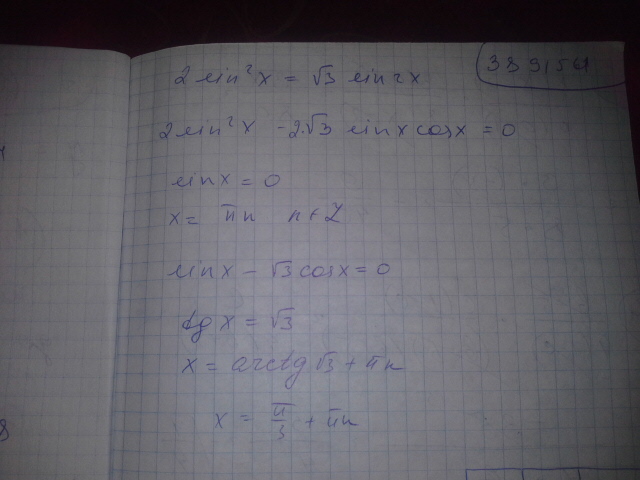 389,561
2 sin²x = √3 sin2x
2 sin²x - 2·√3 sinx cosx = 0
sinx = 0
x = πn n ∈ Z
sinx - √3 cosx = 0
tg x = √3
x = arctg √3 + πn
x = π/3 + πn